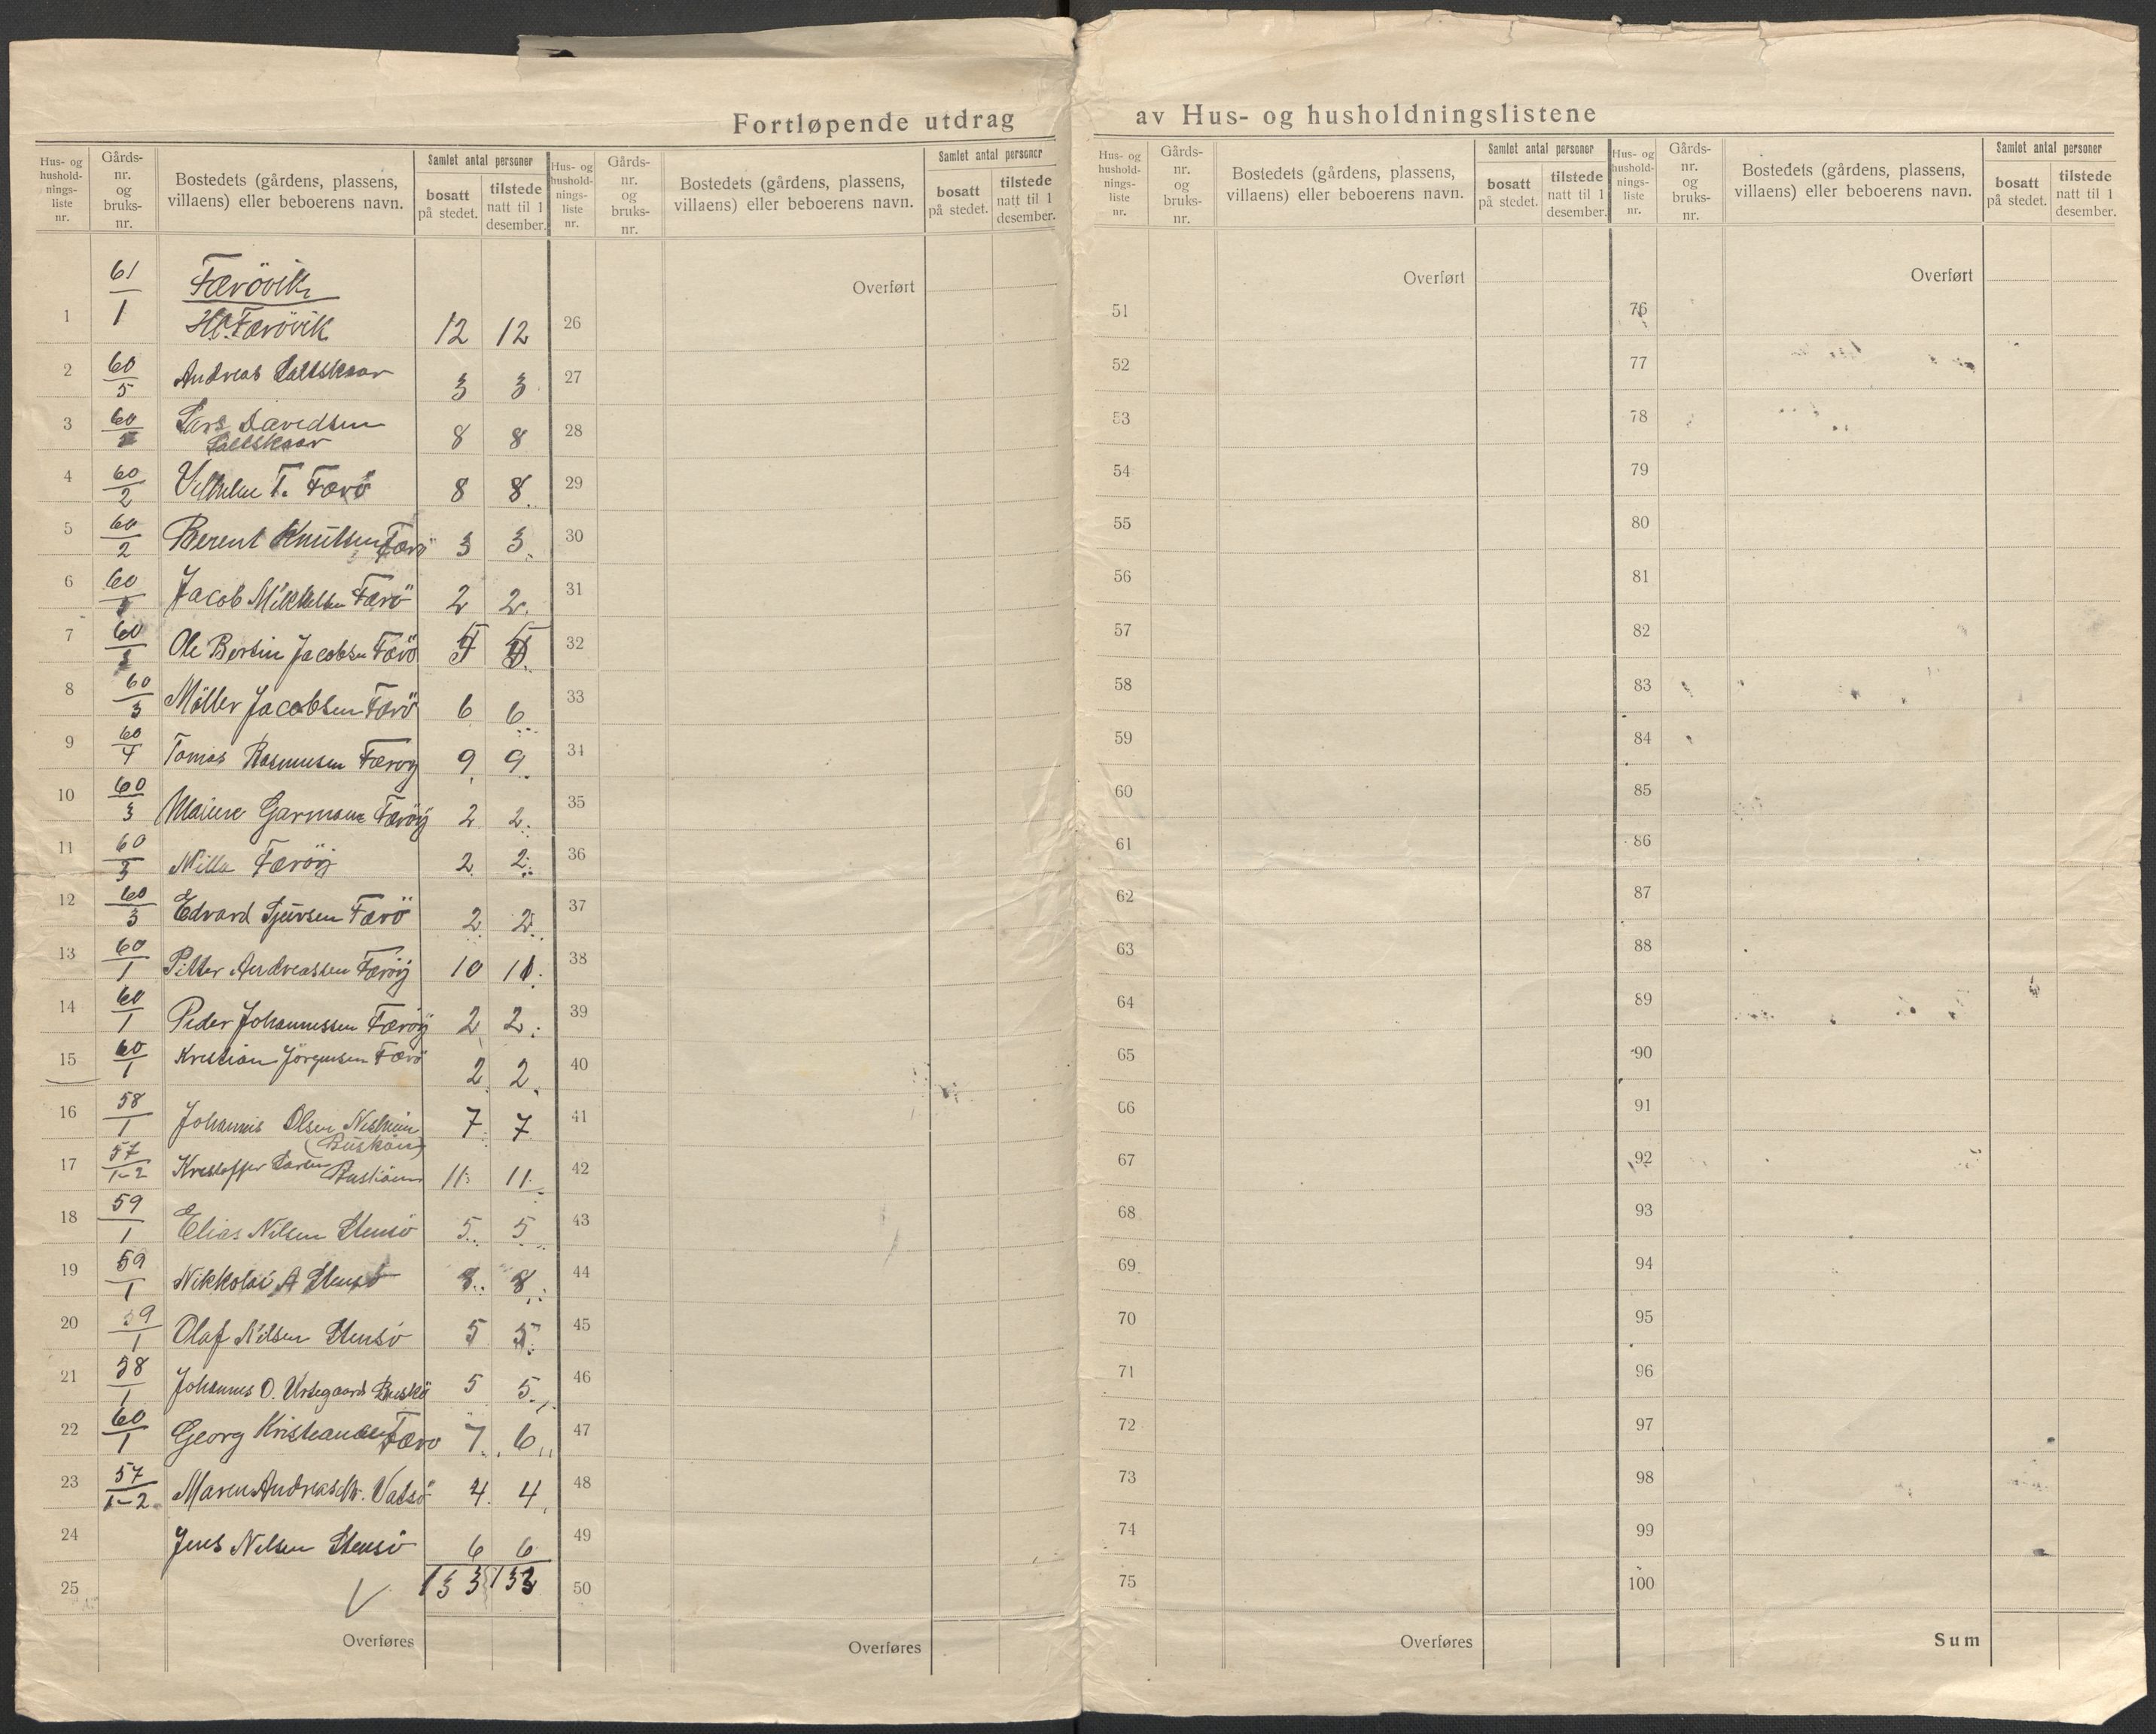 Fortløpende utdrag av Hus- og husholdningslistene
Hus- og hushold-nings-liste nr. Gårds-nr. og bruks-nr. Bostedets (gårdens, plassens, villaens) eller beboerens navn. Samlet antal personer bosatt på stedet. tilstede natt til 1 desember.
61/1 Færövik
1 H.O. Færövik 12 12
2 60/5 Andreas Saltskaar 3 3
3 60 Lars Davidsen Saltskaar 8 8
4 60/2 Vilhelm T. Færö 8 8
5 60/2 Berent Knutsen Færö 3 3
6 60 Jacob Mikkelsen Færö 2 2
7 60 Ole Bertin Jacobsen Færö 5 5
8 60/3 Möller Jacobsen Færö 6 6
9 60/4 Tomas Rasmusen Færöy 9 9
10 60/3 Garmann Færöy 2 2
11 60/3 Milla Færöy 2 2
12 60/3 Edvard Sjursen Færö 2 2
13 60/1 Pitter Andreassen Færöy 10 10
14 60/1 Peder Johannessen Færöy 2 2
15 60/1 Kristian Jörgensen Færö 2 2
16 58/1 Johannes Olsen Nesheim 7 7
(Busköen)
17 57/1-2 Kristoffer Larsen Busköen 11 11
18 59/1 Elias Nilsen Stensö 5 5
19 59/1 Nikkolai A Stensö 8 8
20 59/1 Olaf Nilsen Stensö 5 5
21 58/1 Johannes O. Ursegaard Buskö 5 5
22 60/1 Georg Kristiansen Færö 7 6
23 57/1-2 Maren Andreas Vatsö 4 4
24 Jens Nilsen Stensö 6 6
25 133 132
Overføres
Hus- og hushold-nings-liste nr. Gårds-nr. og bruks-nr. Bostedets (gårdens, plassens, villaens) eller beboerens navn. Samlet antal personer bosatt på stedet. tilstede natt til 1 desember.
Overført
26
27
28
29
30
31
32
33
34
35
36
37
38
39
40
41
42
43
44
45
46
47
48
49
50
Overføres
Hus- og hushold-nings-liste nr. Gårds-nr. og bruks-nr. Bostedets (gårdens, plassens, villaens) eller beboerens navn. Samlet antal personer bosatt på stedet. tilstede natt til 1 desember.
Overført
51
52
53
54
55
56
57
58
59
60
61
62
63
64
65
66
67
68
69
70
71
72
73
74
75
Overføres
Hus- og hushold-nings-liste nr. Gårds-nr. og bruks-nr. Bostedets (gårdens, plassens, villaens) eller beboerens navn. Samlet antal personer bosatt på stedet. tilstede natt til 1 desember.
Overført
76
77
78
79
80
81
82
83
84
85
86
87
88
89
90
91
92
93
94
95
96
97
98
99
100
Sum